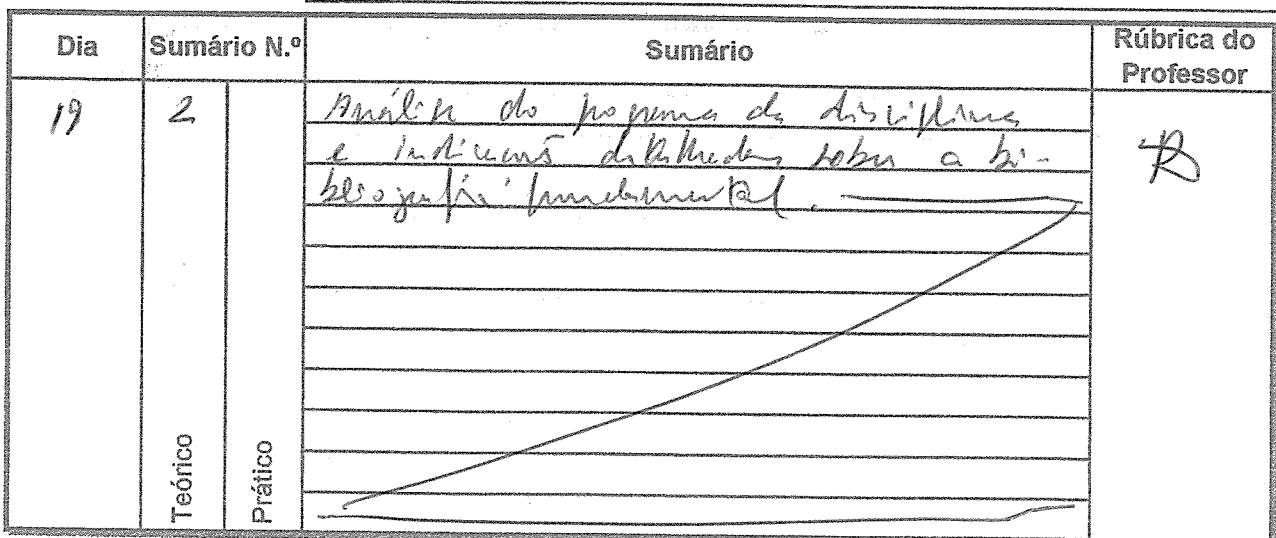 Dia Sumário N.º Sumário Rúbrica do Professor
19 2 Análise do programa da disciplina
e indicações detalhadas sobre a bi-
bliografia fundamental.
Teórico Prático